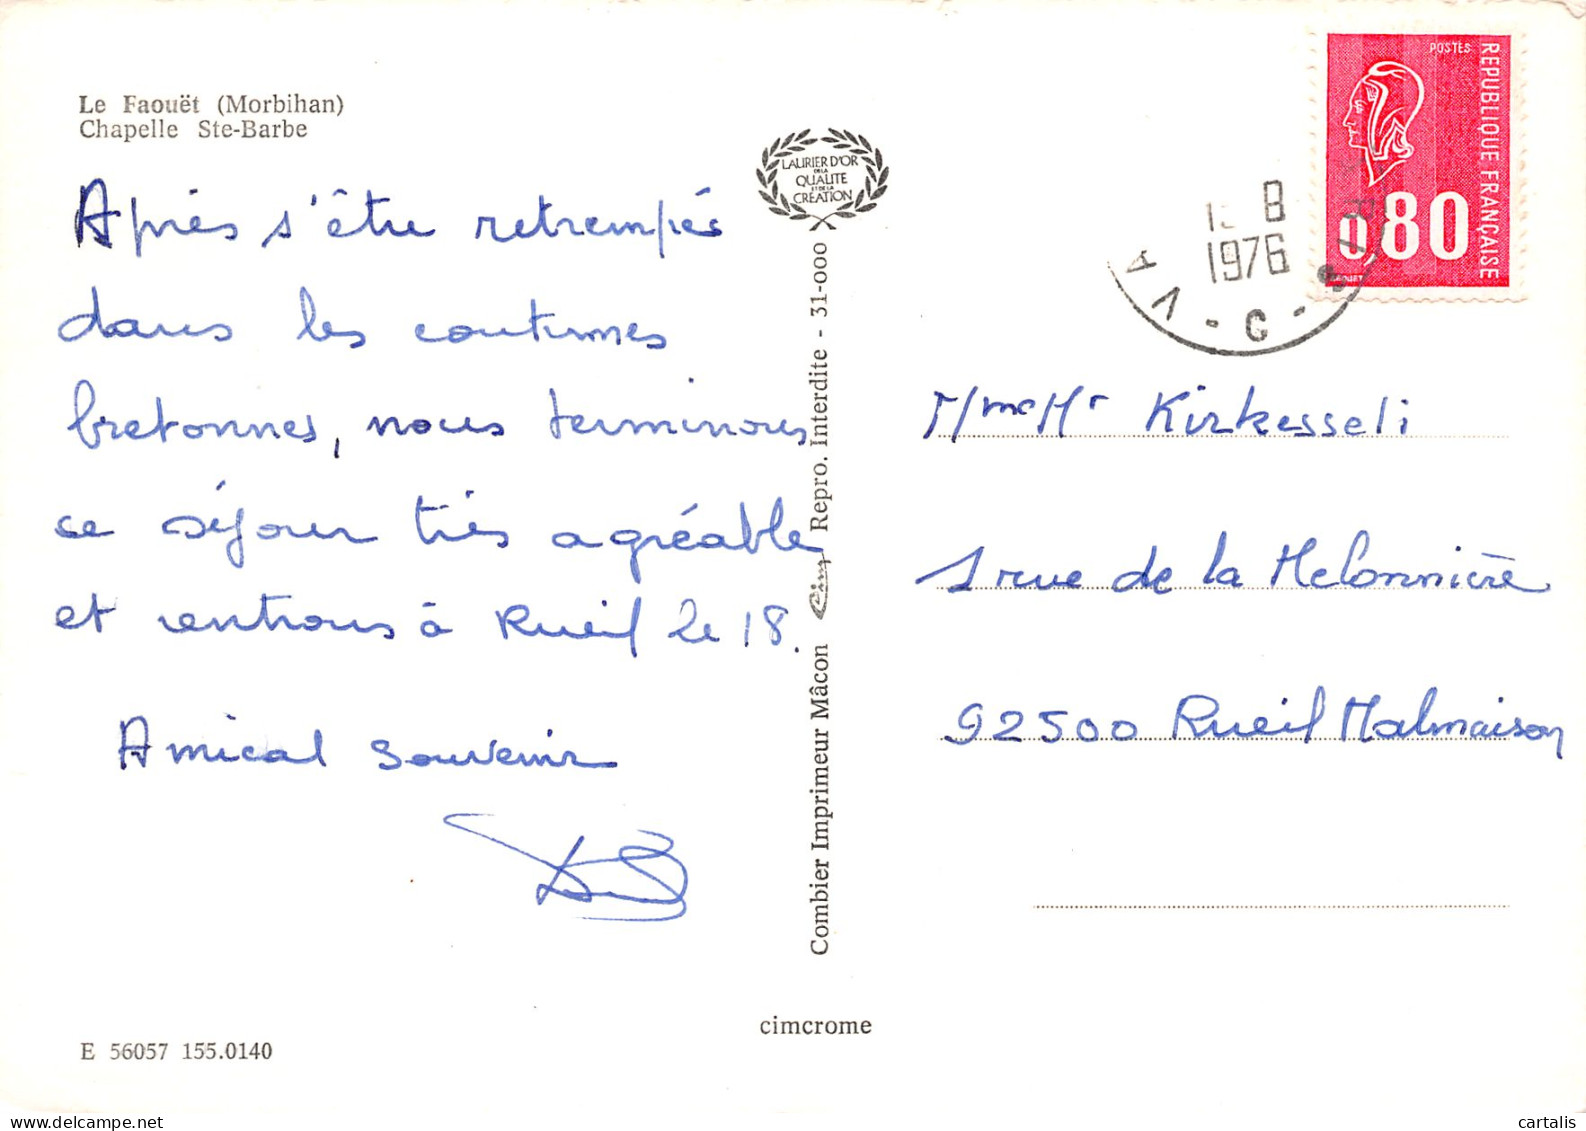 Le Faouët (Morbihan)
Chapelle Ste-Barbe
Après s'être retrempés
dans les coutumes
bretonnes, nous terminons
ce séjour très agréable
et rentrons à Rueil le 18.
Amical souvenir
E 56057 155.0140
LAURIER D'OR
DE LA
QUALITE
ET DE LA
CRÉATION
Combier Imprimeur Mâcon Cim Repro. Interdite - 31-000
cimcrome
POSTES
REPUBLIQUE FRANÇAISE
0,80
8
1976
Mme Mr Kirkesseli
1 rue de la Melonnière
92500 Rueil Malmaison
cartalis